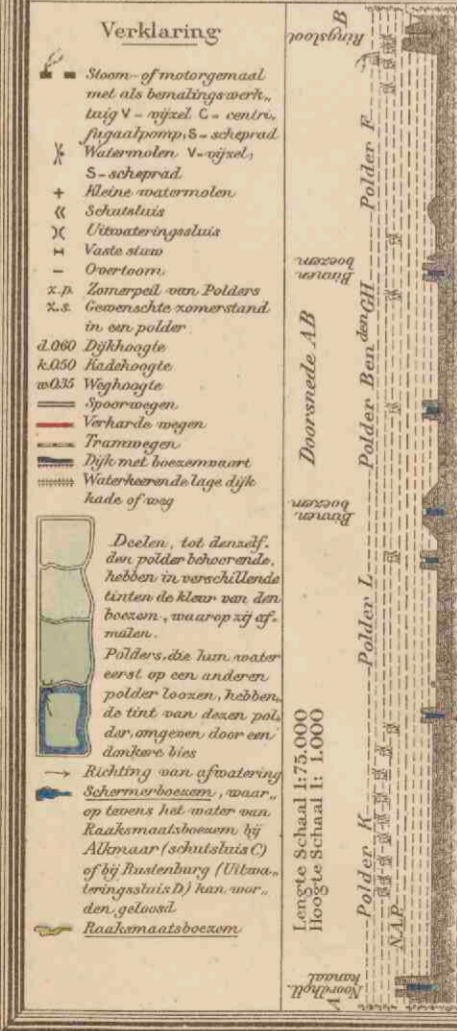 Verklaring
Stoom- of motorgemaal
met als bemalingswerk„
tuig V = vijzel C = centri„
fugaalpomp, S = scheprad
Watermolen V = vijzel,
S = scheprad
+ Kleine watermolen
Schutsluis
Uitwateringssluis
Vaste stuw
Overtoom
z.p. Zomerpeil van Polders
z.s. Gewenschte zomerstand
in een polder
d.060 Dijkhoogte
k.050 Kadehoogte
w.035 Weghoogte
Spoorwegen
Verharde wegen
Tramwegen
Dijk met boezemvaart
Waterkeerende lage dijk
kade of weg
Deelen, tot denzelf„
den polder behoorende,
hebben in verschillende
tinten de kleur van den
boezem, waarop zij af„
malen.
Polders, die hun water
eerst op een anderen
polder loozen, hebben,
de tint van dezen pol„
der, omgeven door een
donkere bies
→ Richting van afwatering
Schermerboezem, waar„
op tevens het water van
Raaksmaatsboezem bij
Alkmaar (schutsluis C)
of bij Rustenburg (Uitwa„
teringssluis D) kan wor„
den geloosd
Raaksmaatsboezem
Doorsnede AB
Lengte Schaal 1:75.000
Hoogte Schaal 1: 1.000
A
Noordholl.
kanaal
N.A.P.
Polder K
Polder L
Binnen
boezem
Polder B en den GH
Binnen
boezem
Polder F
Ringsloot
B